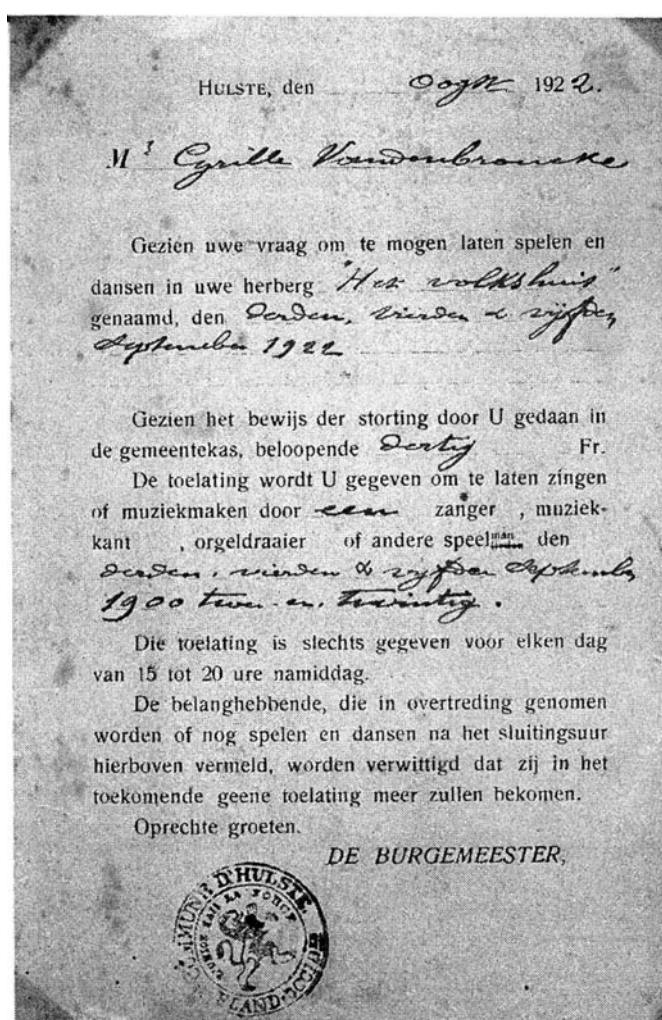 HULSTE, den Oogst 1922.
Mr Cyrille Vandenbroucke
Gezien uwe vraag om te mogen laten spelen en
dansen in uwe herberg "Het volkshuis"
genaamd, den derden, vierden & vijfden
September 1922
Gezien het bewijs der storting door U gedaan in
de gemeentekas, beloopende dertig Fr.
De toelating wordt U gegeven om te laten zingen
of muziekmaken door een zanger , muziek-
kant , orgeldraaier of andere speelman den
derden, vierden & vijfden September
1900 twee en twintig.
Die toelating is slechts gegeven voor elken dag
van 15 tot 20 ure namiddag.
De belanghebbende, die in overtreding genomen
worden of nog spelen en dansen na het sluitingsuur
hierboven vermeld, worden verwittigd dat zij in het
toekomende geene toelating meer zullen bekomen.
Oprechte groeten.
DE BURGEMEESTER,
COMMUNE D'HULSTE
L'UNION FAIT LA FORCE
FLAND. OCCID